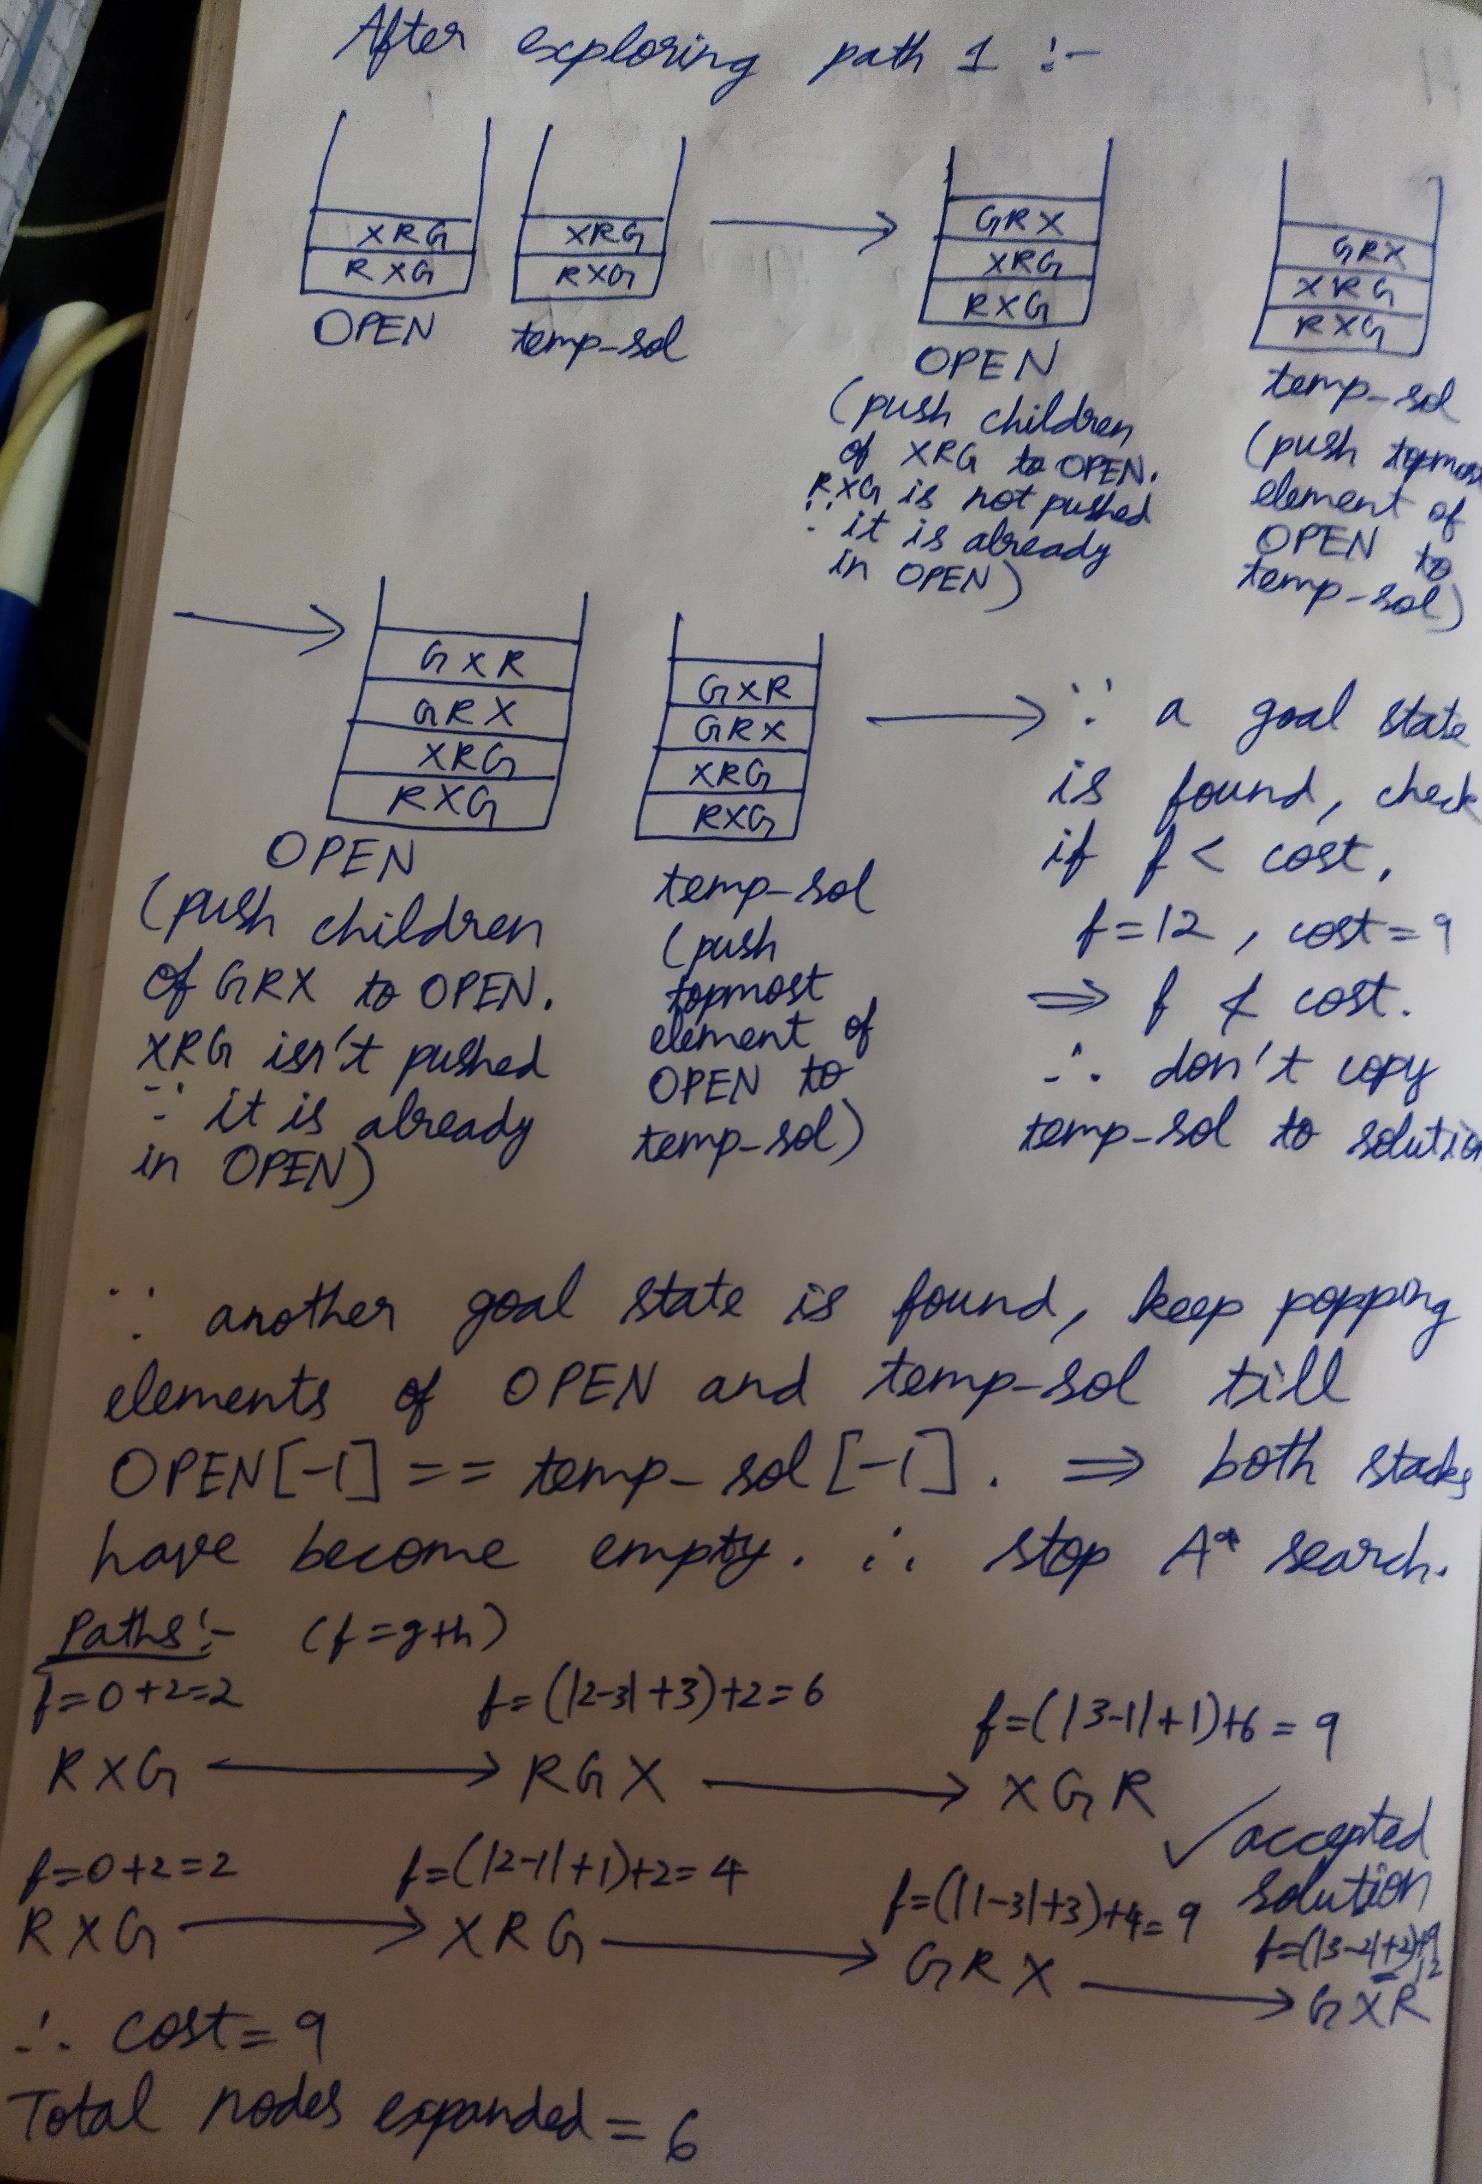 After exploring path 1 :-
XRG
RXG
OPEN
XRG
RXG
temp-sol
GRX
XRG
RXG
OPEN
(push children
of XRG to OPEN.
RXG is not pushed
∵ it is already
in OPEN)
GRX
XRG
RXG
temp-sol
(push topmost
element of
OPEN to
temp-sol)
GXR
GRX
XRG
RXG
OPEN
(push children
of GRX to OPEN.
XRG isn't pushed
∵ it is already
in OPEN)
GXR
GRX
XRG
RXG
temp-sol
(push
topmost
element of
OPEN to
temp-sol)
∵ a goal state
is found, check
if f < cost.
f=12, cost=9
⇒ f ≮ cost.
∴ don't copy
temp-sol to solution
∵ another goal state is found, keep popping
elements of OPEN and temp-sol till
OPEN[-1] == temp-sol[-1]. ⇒ both stacks
have become empty. ∴ stop A* search.
Paths:- (f=g+h)
f=0+2=2 f=(|2-3|+3)+2=6 f=(|3-1|+1)+6=9
RXG → RGX → XGR
✓ accepted
solution
f=0+2=2 f=(|2-1|+1)+2=4 f=(|1-3|+3)+4=9 f=(|3-2|+2)+9
12
RXG → XRG → GRX → GXR
∴ cost=9
Total nodes expanded=6